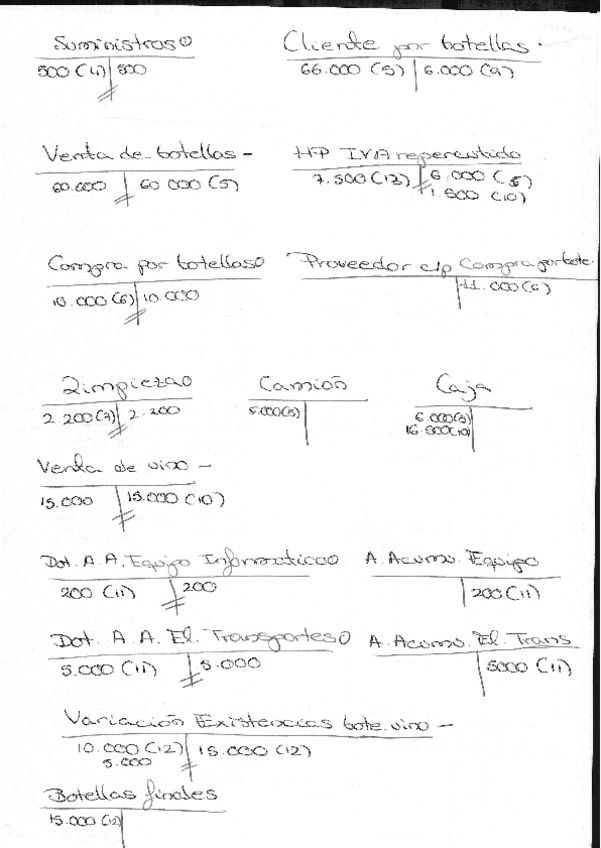 Suministros Cliente por botellas.
500 (4) 500 66.000 (5) 6.000 (9)
Venta de botellas - HP IVA repercutido
60.000 60 000 (5) 7.500 (13) 6.000 (5)
1.500 (10)
Compra por botellas Proveedor c/p Compra por bote.
10.000 (6) 10.000 11.000 (6)
Limpieza Camión Caja
2.200 (7) 2.200 5.000 (8) 6.000 (9)
16.500 (10)
Venta de vino -
15.000 15.000 (10)
Dot. A. A. Equipo Informatico A. Acumu. Equipo
200 (11) 200 200 (11)
Dot. A. A. El. Transportes A. Acumu. El. Trans
5.000 (11) 5.000 5000 (11)
Variación Existencias bote. vino -
10.000 (12) 15.000 (12)
5.000
Botellas finales
15.000 (12)